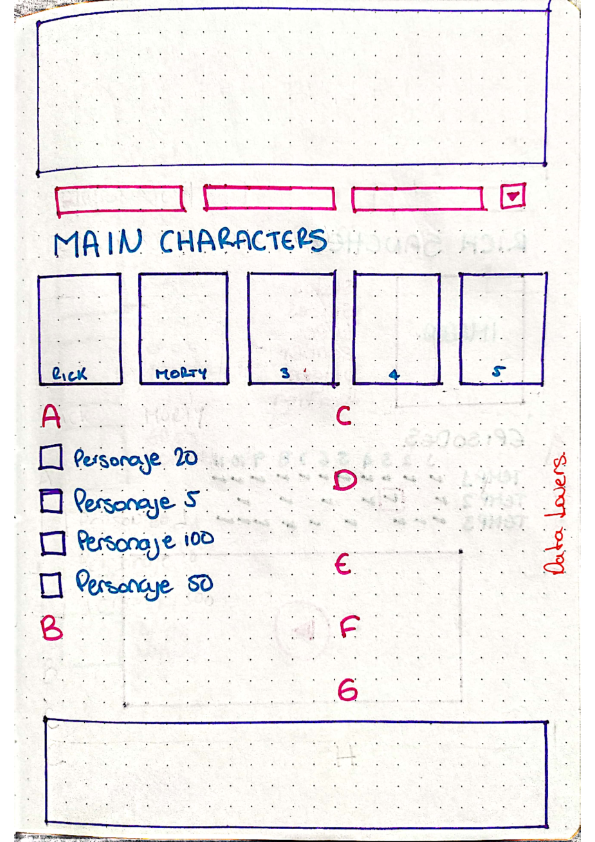 MAIN CHARACTERS
RICK
MORTY
3
4
5
A
Personaje 20
Personaje 5
Personaje 100
Personaje 50
B
C
D
E
F
G
Data Lovers